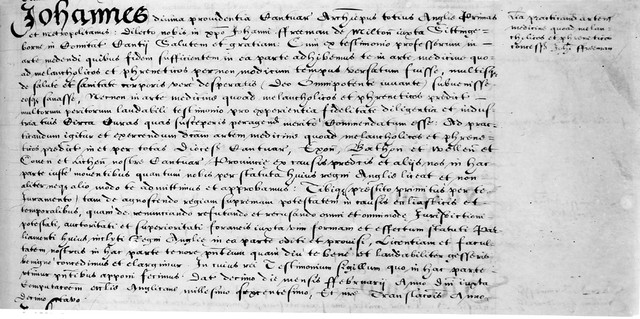 Johannes divina providentia Cantuar Archiepus totius Anglie Primas
et metropolitanus. Dilecto nobis in xpo Johanni ffreeman de Milton iuxta Sittinge-
borne in Comitat Cantij Salutem et gratiam. Cum ex testimonio professorum in
arte medendi quibus fidem sufficientem in ea parte adhibemus te in arte medicine quo-
ad melancholicos et phreneticos per non modicum tempus versatum fuisse, multisq
de salute et sanitate corporis veri desperatis (Deo Omnipotente iuvante) subvenisse
eosq sanasse, Necnon in arte medicine quoad melancholicos et phreneticos predict
multorum peritorum laudabili testimonio pro experientia fidelitate diligentia et indus-
tria tuis circa Curas quas susceperis peragend merito Commendatum esse. Ad prac-
ticandum igitur et exercendum dictam artem medicine quoad melancholicos et phrene-
ticos predict in et per totas Dioces Cantuar, Exon, Bathon et Wellen et
Coven et Lichen nostre Cantuar Provincie ex causis predictis et alijs nos in hac
parte iuste moventibus quantum nobis per statuta huius regni Anglie liceat et non
aliter neq alio modo te admittimus et approbamus. Tibiq prestito primitus per te
Iuramento, tam de agnoscendo regiam supremam potestatem in causis ecclesiasticis et
temporalibus, quam de renunciando refutando et recusando omni et omnimode Iurisdictioni
potestati, auctoritati et superioritati foraneis iuxta vim formam et effectum statuti Par-
liamenti huius inclyti Regni Anglie in ea parte editi et provisi, Licentiam et facul-
tatem nostras in hac parte tenore pntium quam diu te bene et laudabiliter gesseris
benigne concedimus et elargimur. In cuius rei Testimonium sigillum quo in hac parte
vtimur pntibus apponi fecimus. Dat decimo die mensis ffebruarij Anno Dni iuxta
Computacionem ecclie Anglicane millesimo sexcentesimo, Et nre Translacois Anno
decimo octavo.
ria practicand artem
medicine quoad melan-
cholicos et phreneticos
concess Johi ffreeman